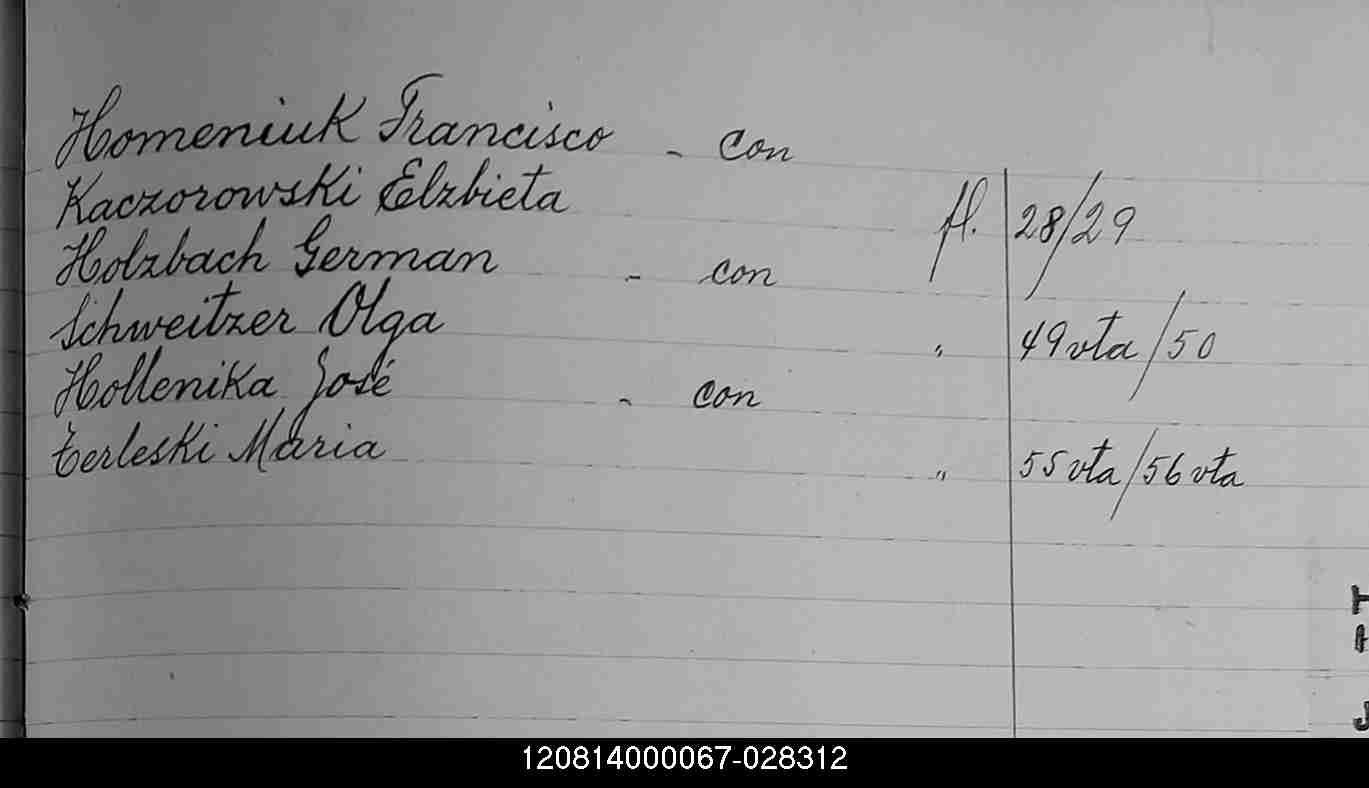 Homeniuk Francisco - con
Kaczorowski Elzbieta fl. 28/29
Holzbach German - con
Schweitzer Olga " 49 vta/50
Hollenika José - con
Zerleski Maria " 55 vta/56 vta
120814000067-028312